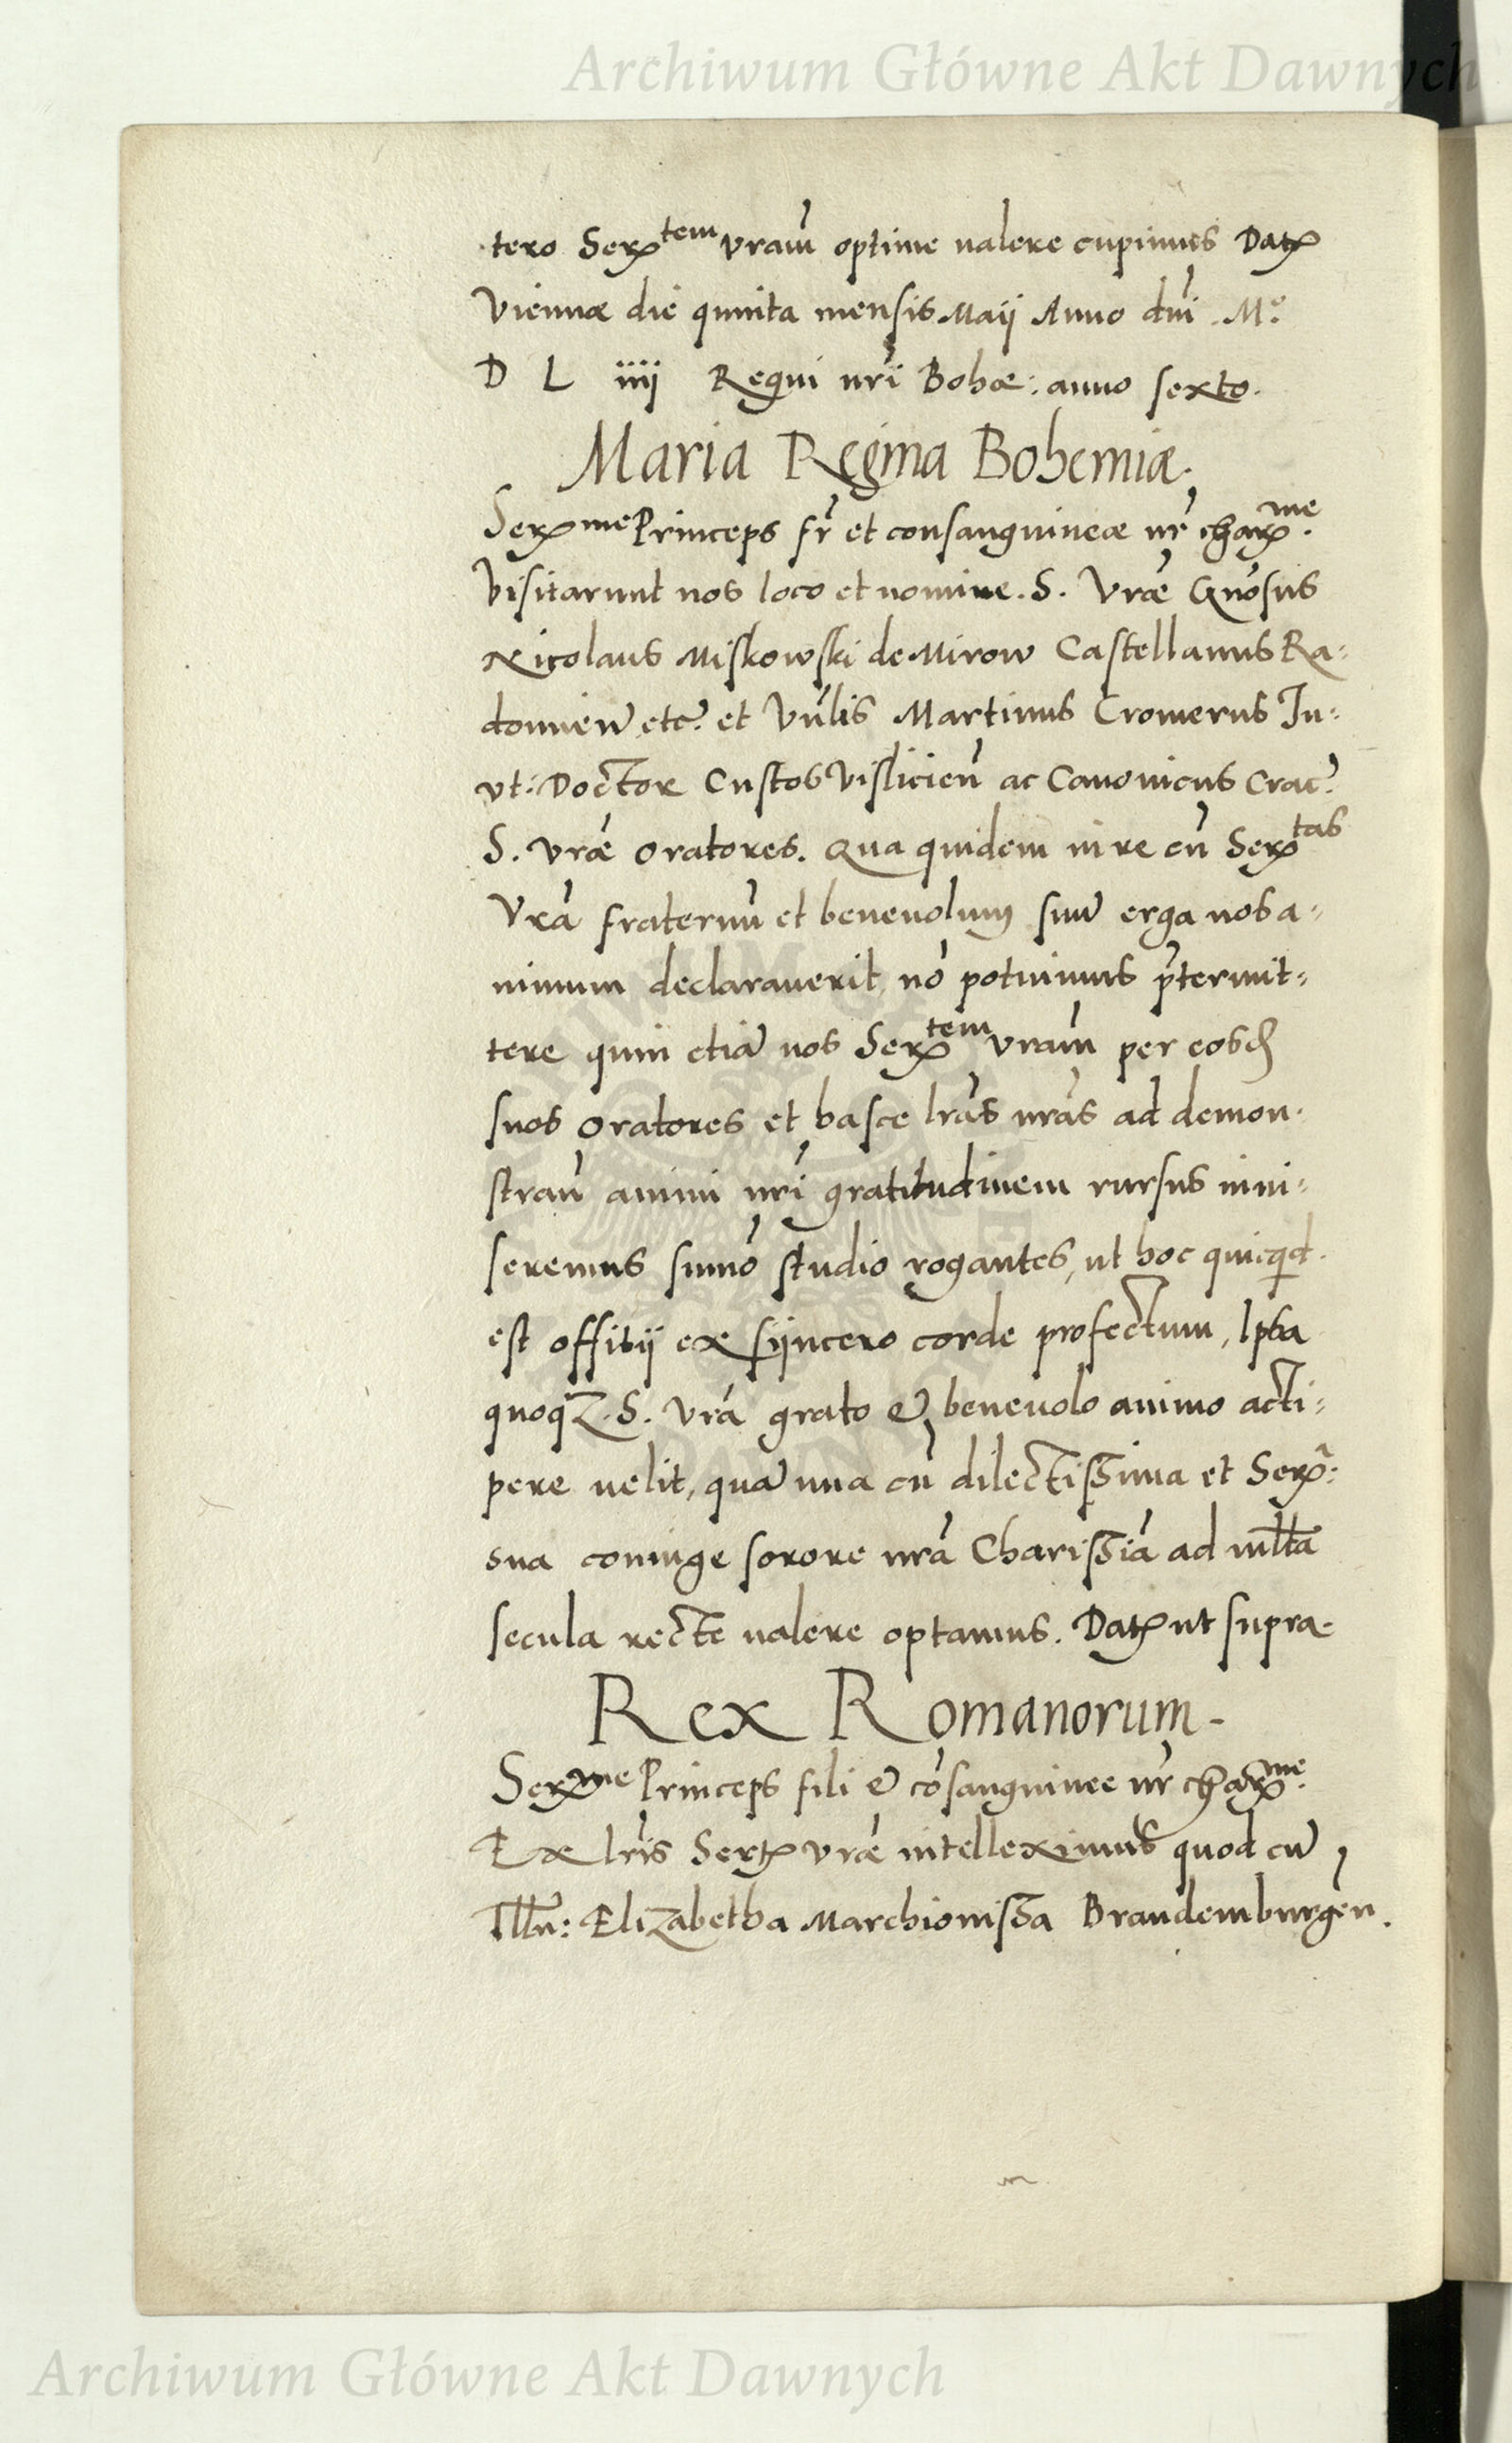 Archiwum Główne Akt Dawnych
tero Serꝫ^tem vram̃ optime ualere cupimus Datꝫ
Viennæ die quinta mensis Maij Anno dñi M.º
D L iiij Regni nr̃i Bohæ: anno sexto.
Maria Regina Bohemiæ.
Serꝫ^me Princeps fr̃ et consanguineæ nr̃ charꝫ^me.
Visitarunt nos loco et nomine .S. Vræ̃ Gnõsus
Nicolaus Miskowski de Mirow Castellanus Ra=
domien̄ etc̃. et Vñlis Martinus Cromerus Iu=
vt: Doctor Custos Visliciẽn ac Canonicus Crac̃.
S. vræ̃ oratores. Qua quidem in re cũ Serꝫ^tas
Vrã fraternũ et beneuolum suũ erga nos a=
nimum declarauerit, nõ potuimus p̃termit=
tere quin etiã nos Serꝫ^tem vram̃ per eosd̃
suos oratores et hasce lr̃as nr̃as ad demon=
stran̄ animi nr̃i gratitudinem rursus inui=
seremus sum̃o studio rogantes, ut hoc quicqͥd
est offitij ex sijncero corde profectum, Ip̃sa
quoqꝫ .S. Vrã grato et beneuolo animo acti=
pere uelit, quã una cũ dilectissima et Serꝫ̃:
sua coniuge sorore nrã Charissiã ad mĺta
secula recte ualere optamus. Datꝫ ut supra.
Rex Romanorum.
Serꝫ^me Princeps fili et cõsanguinee nr̃ charꝫ^me.
Ex lr̃is Sertꝫ vræ̃ intelleximus quod cũ
Illñ: Elizabetha Marchionissa Brandemburgẽn.
Archiwum Główne Akt Dawnych